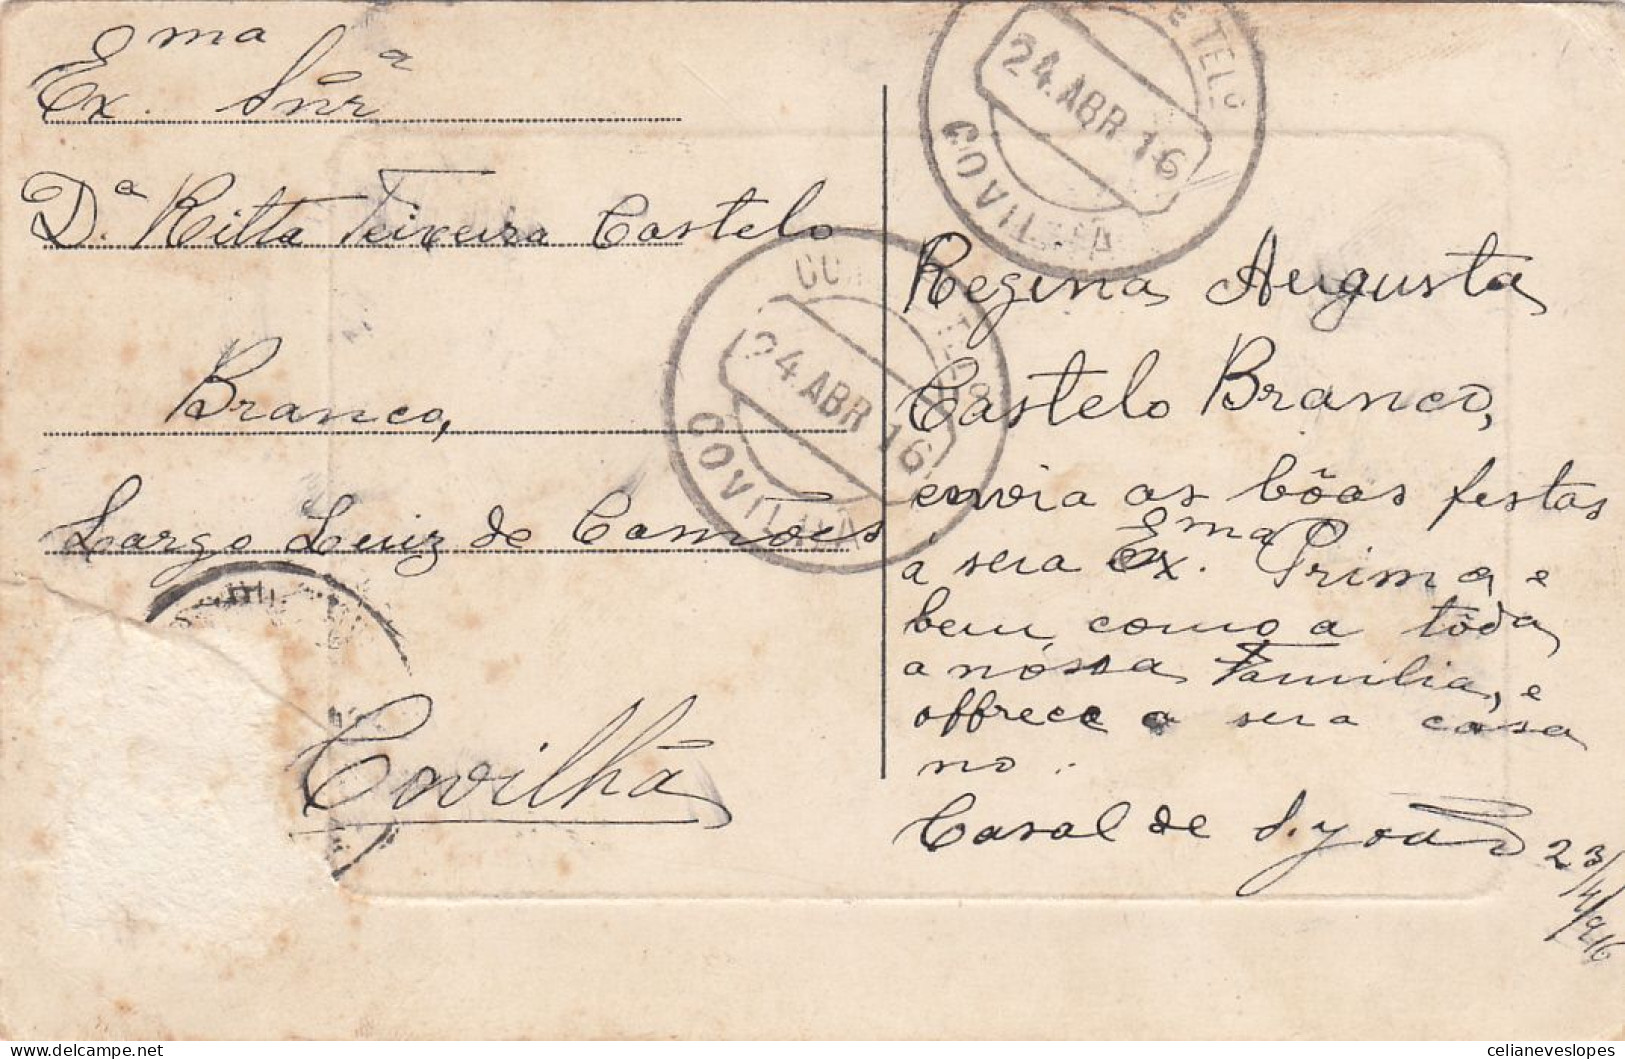 Ex.ma Snr.a
D.a Ritta Teixeira Castelo
Branco,
Largo Luiz de Camões
Covilhã
E TELG
24.ABR 16
COVILHÃ
24.ABR 16
COVILHÃ
Regina Augusta
Castelo Branco,
envia as bôas festas
a sua Ex.ma Prima, e
bem como a tôda
a nóssa Familia, e
offrece a sua casa
no .
Casal de S. João
23/4/916
Delcampe.net
celianeveslopes